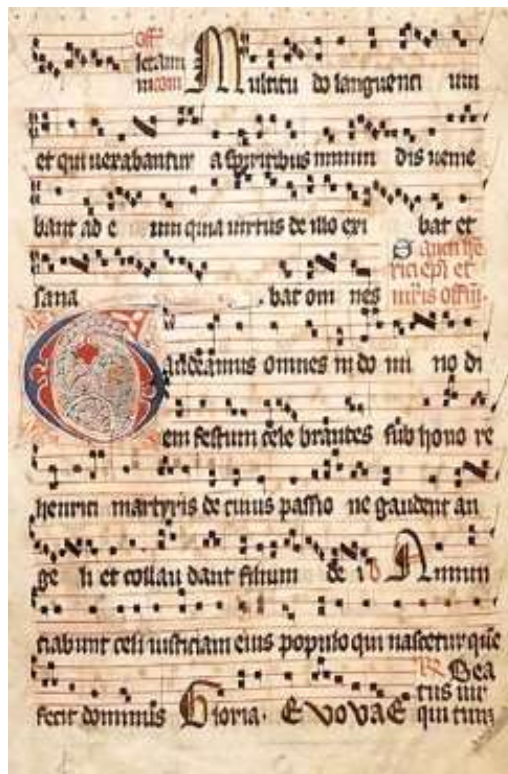 Multitu do languenti um
et qui uexabantur a spiritibus inmun dis uenie
bant ad e um quia uirtus de illo exi bat et
sana bat om nes
Gaudeamus omnes in do mi no di
em festum cele brantes sub hono re
henrici martyris de cuius passio ne gaudent an
ge li et collau dant filium de i Annun
ciabunt celi iusticiam eius populo qui nascetur que
fecit dominus Gloria. EVOVAE
Bea
tus uir
qui tim